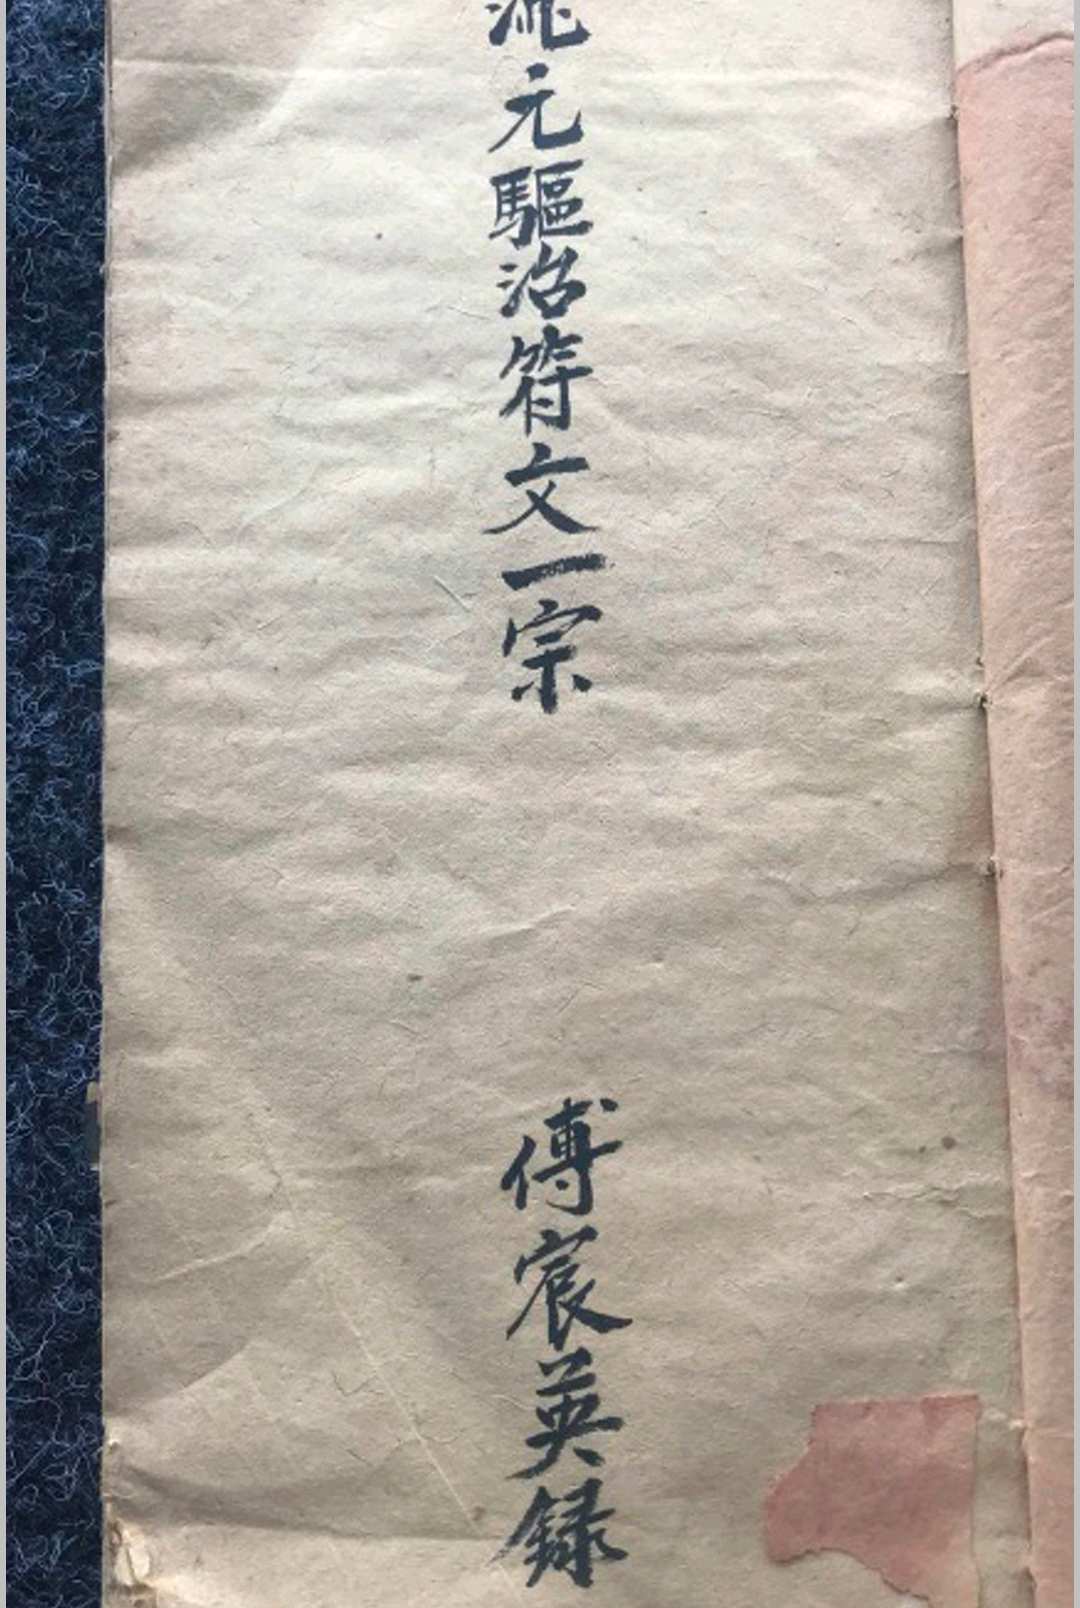 流元驅治符文一宗
傅宸英録